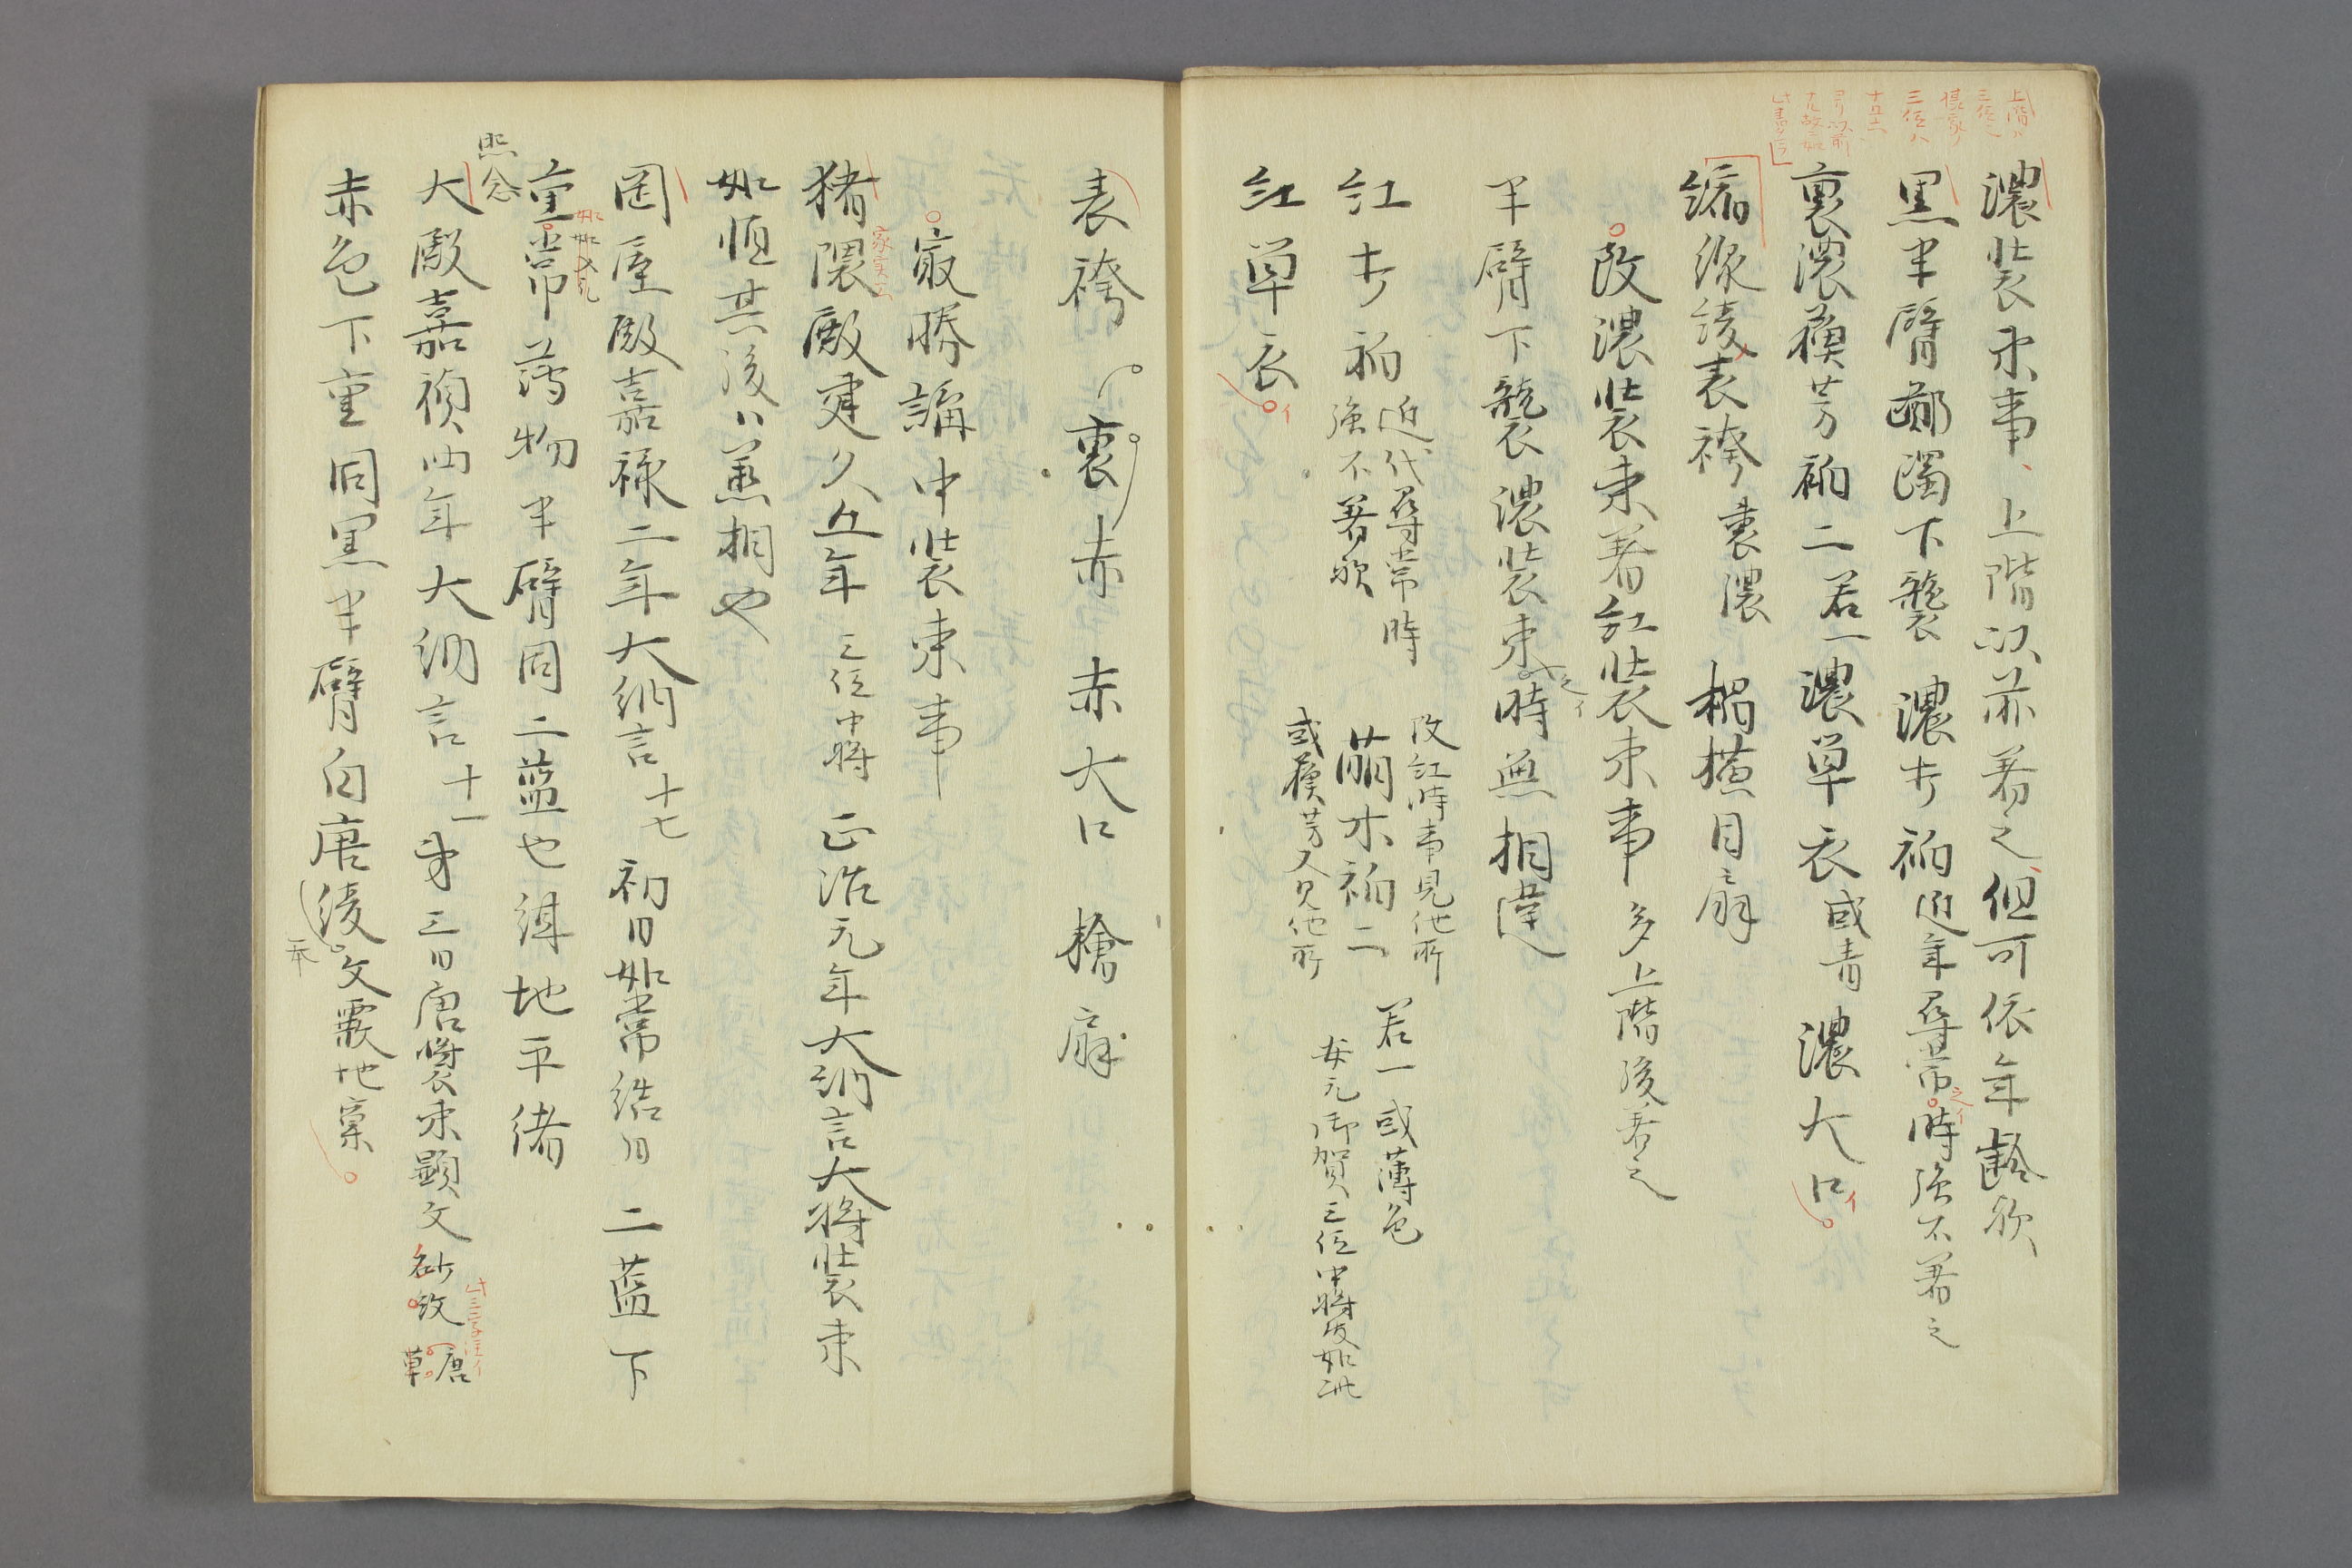 濃装束事、上階以前着之、但可依年齢欤
黒半臂躑躅下襲 濃打衵近年尋常時強不着之
裏濃蘇芳衵二若一濃単衣或青 濃大口
縮線綾表袴裏濃 榻横目扇
改濃装束着紅装束事 多上階後着之
半臂下襲濃装束時無相違
改紅時事見他所
紅打衵近代尋常時強不着欤 萌木衵二 若一或薄色
或蘇芳又見他所 安元御賀三位中将殿如此
紅単衣
表袴 裏赤 赤大口 檜扇
最勝講中装束事
猪隈殿建久五年三位中将 正治元年大納言大将装束
如恒其後ハ兼相也
岡屋殿嘉禄二年大納言十七 初日如常結日 二藍下
重常薄物半臂同二藍也 地平緒
照念
大殿嘉禎四年大納言十一 第三日唐装束顕文紗紋唐草
赤色下重同黒半臂白唐綾文 地窠